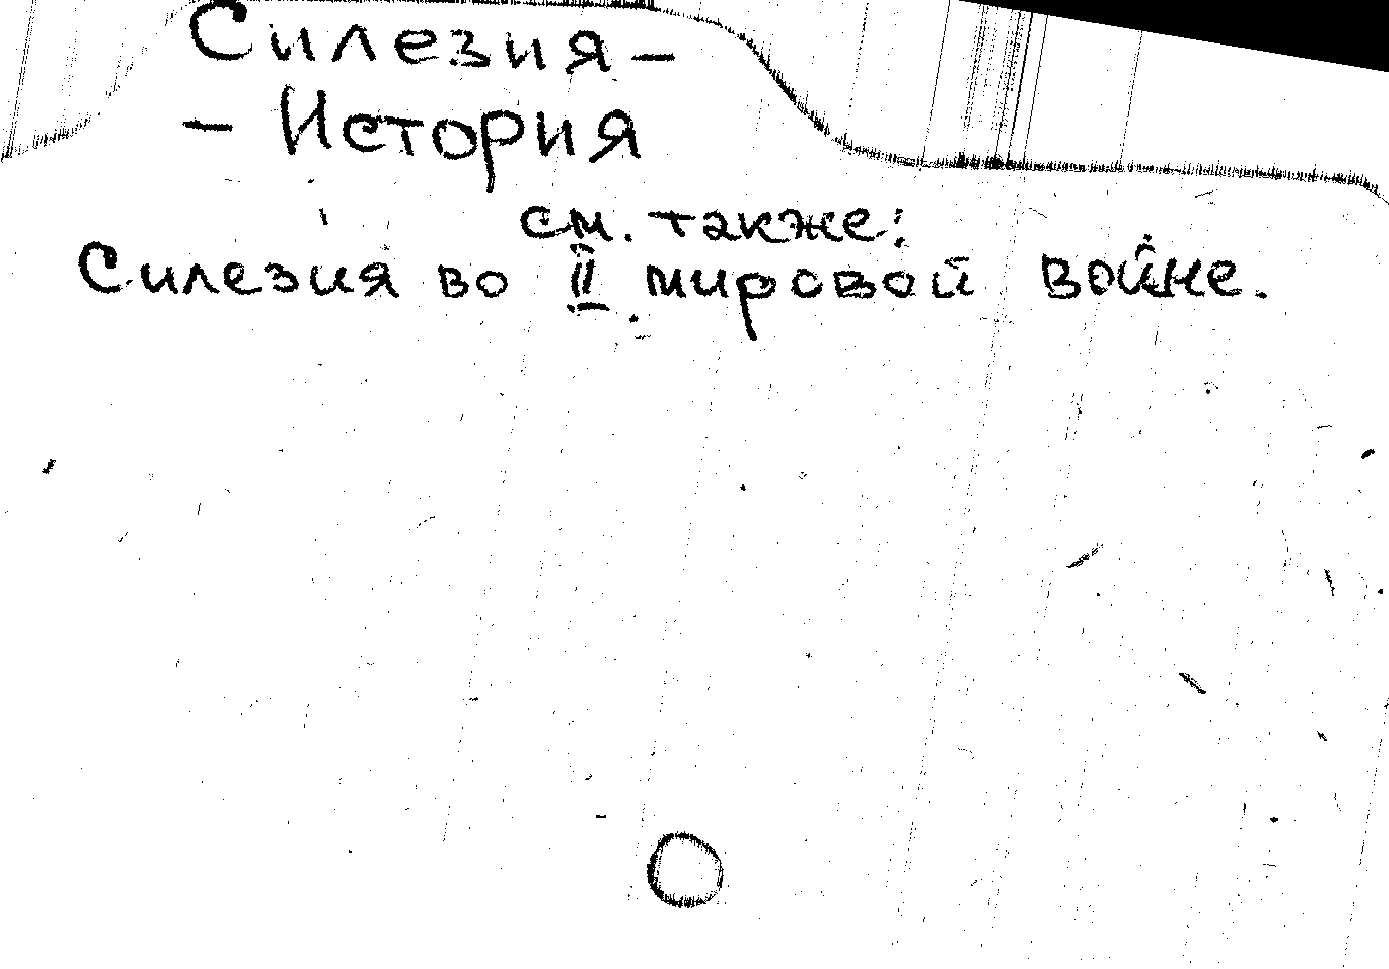 Силезия –
– История
см. также:
Силезия во II мировой войне.